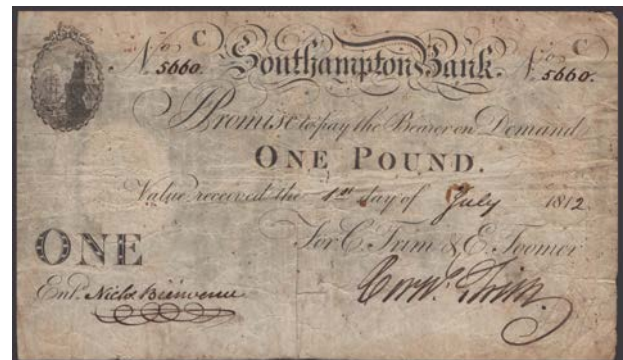 C C
No 5660. Southampton Bank. No 5660.
I Promise to pay the Bearer on Demand
ONE POUND.
Value received the 1st day of July 1812
ONE
For C. Trim & E. Toomer
Entd. Nichs Bienvenu
Trim